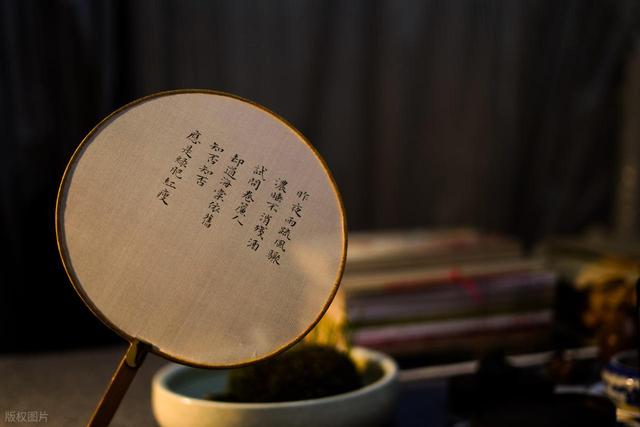 昨夜雨疏風驟
濃睡不消殘酒
試問卷簾人
卻道海棠依舊
知否知否
應是綠肥紅瘦
版权图片